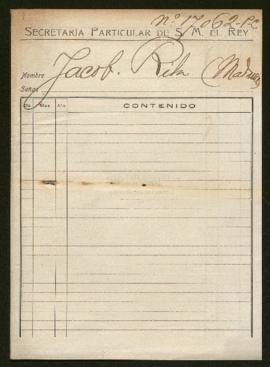 Nº 17062-Pe
SECRETARÍA PARTICULAR DE S. M. EL REY
Nombre Jacob. Rita
Señas
Día Mes Año CONTENIDO